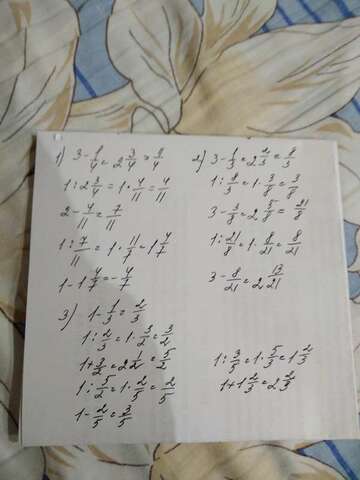 1) 3 - 1/4 = 2 3/4 = 9/4
1 : 2 3/4 = 1 · 4/11 = 4/11
2 - 4/11 = 7/11
1 : 7/11 = 1 · 11/7 = 1 4/7
1 - 1 4/7 = - 4/7
2) 3 - 1/3 = 2 2/3 = 8/3
1 : 8/3 = 1 · 3/8 = 3/8
3 - 3/8 = 2 5/8 = 21/8
1 : 21/8 = 1 · 8/21 = 8/21
3 - 8/21 = 2 13/21
3) 1 - 1/3 = 2/3
1 : 2/3 = 1 · 3/2 = 3/2
1 + 3/2 = 2 1/2 = 5/2
1 : 5/2 = 1 · 2/5 = 2/5
1 - 2/5 = 3/5
1 : 3/5 = 1 · 5/3 = 1 2/3
1 + 1 2/3 = 2 2/3